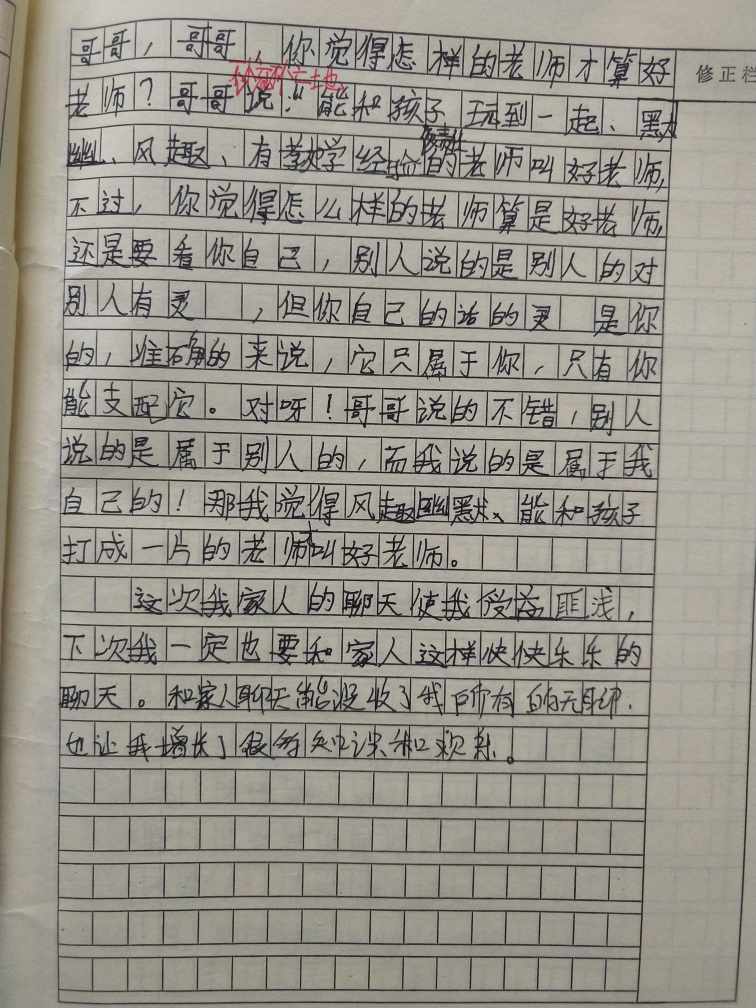 哥哥，哥哥，你觉得怎样的老师才算好
老师？哥哥说："能和孩子玩到一起、默
幽、风趣、有教学经验的老师叫好老师，
不过，你觉得怎么样的老师算是好老师，
还是要看你自己，别人说的是别人的对
别人有灵，但你自己的话的灵是你
的，准确的来说，它只属于你，只有你
能支配它。对呀！哥哥说的不错，别人
说的是属于别人的，而我说的是属于我
自己的！那我觉得风趣幽默、能和孩子
打成一片的老师才叫好老师。
这次我家人的聊天使我受益匪浅，
下次我一定也要和家人这样快快乐乐的
聊天。和家人聊天能没收了我所有的无聊，
也让我增长了很多知识和欢乐。
修正栏